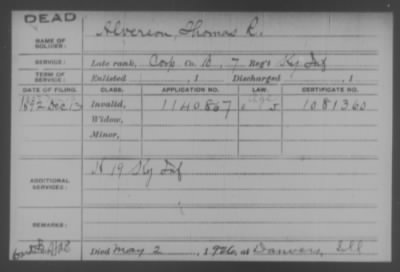 DEAD
NAME OF SOLDIER: Alverson, Thomas R.
SERVICE: Late rank, Corp Co. B, 7 Reg't Ky Inf
TERM OF SERVICE: Enlisted , 1 Discharged , 1
DATE OF FILING. CLASS. APPLICATION NO. LAW. CERTIFICATE NO.
1892 Dec 13 Invalid, 1140867 1081360
Widow,
Minor,
ADDITIONAL SERVICES: H 19 Ky Inf
REMARKS:
Died May 2 , 1926, at Danvers, Ill